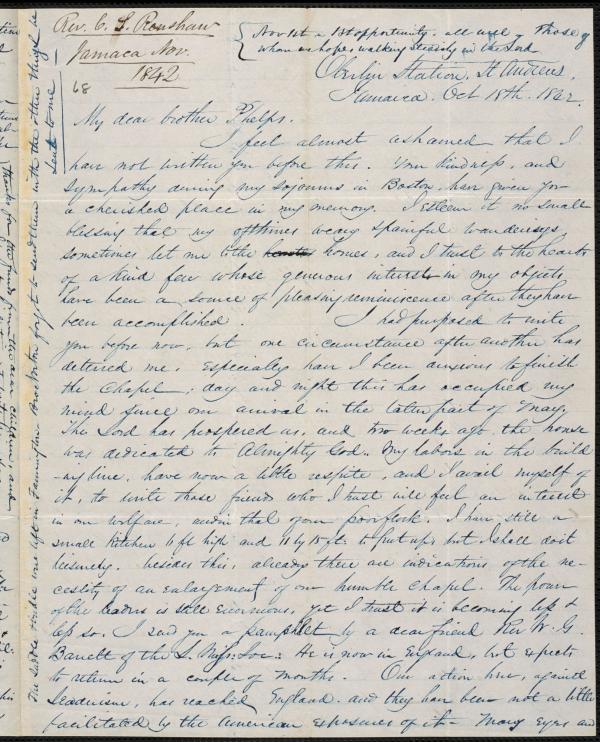 Rev. C. S. Renshaw
Jamaca Nov.
1842
68
Nov 1st - 1st opportunity. all well - Those of
whom we hope, walking steadily in the Lord
Oberlin Station, St Andrews,
Jamaica. Oct 18th. 1842.
My dear brother Phelps.
I feel almost ashamed that I
have not written you before this. Your kindness, and
sympathy during my sojourns in Boston, have given you
a cherished place in my memory. I esteem it no small
blessing that my ofttimes weary & painful wanderings
sometimes led me to the homes, and I trust to the hearts
of a kind few whose generous interest in my objects
have been a source of pleasing reminiscence after they have
been accomplished. I had purposed to write
you before now, but one circumstance after another has
deterred me. Especially have I been anxious to finish
the Chapel; day and night this has occupied my
mind since our arrival in the latter part of May.
The Lord has prospered us, and two weeks ago the house
was dedicated to Almighty God. My labors in the build
-ing line, have now a little respite, and I avail myself of
it, to write those friends who I trust will feel an interest
in our welfare, and in that of our poor flock. I have still a
small kitchen 6 ft high and 11 by 15 ft. to put up, but I shall do it
leisurely. besides this, already there are indications of the ne-
cessity of an enlargement of our humble Chapel. The power
of the leaders is still enormous, yet I trust it is becoming less &
less so. I send you a pamphlet by a dear friend Rev W. G.
Barrett of the L. Miss. Soc: He is now in England, but expects
to return in a couple of months. Our action here, against
Leaderism, has reached England. and they have been not a little
facilitated by the American exposures of it - Many eyes are
The saddle
left in Farmington
forget to send them with the other things
sent to me